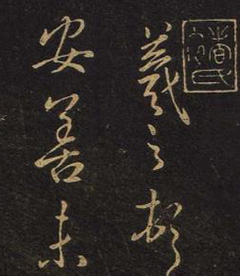 羲之頓
安善未